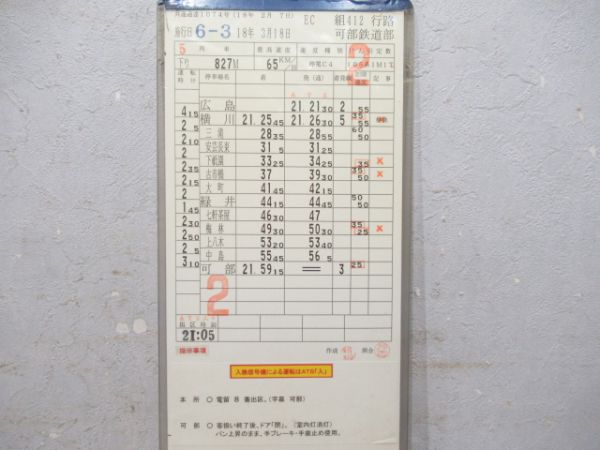 EC 組412 行路
施行日 6-3 18年 3月18日 可部鉄道部
5 列車 最高速度 速度種別 けん引定数
下り 827M 65 KM/h 停電C4
運転時分 停車場名 着 発(通) 着発線 記事
広島 21.21 30 2 55
4 15
横川 21.25 45 21.26 30 5 55
2 05
三滝 28 35 28 55 60 50
2 10
安芸長束 31 5 31 25
2
下祇園 33 25 34 25 35 ×
2 35
古市橋 37 39 30 35 50 ×
2 15
大町 41 45 42 15
2
緑井 44 15 44 45 50 50
1 45
七軒茶屋 46 30 47
2 30
梅林 49 30 50 30 35 25 ×
2 50
上八木 53 20 53 40
2 5
中島 55 45 56 5
3 10 25
可部 21.59 15 = 3
2
出区時刻
21:05
指示事項 作成 照合
入換信号機による運転はATS「入」
本所 ○ 電留 8 番出区。(字幕 可部)
可部 ○ 客扱い終了後、ドア「閉」。(室内灯滅灯)
パン上昇のまま、手ブレーキ・手歯止め使用。